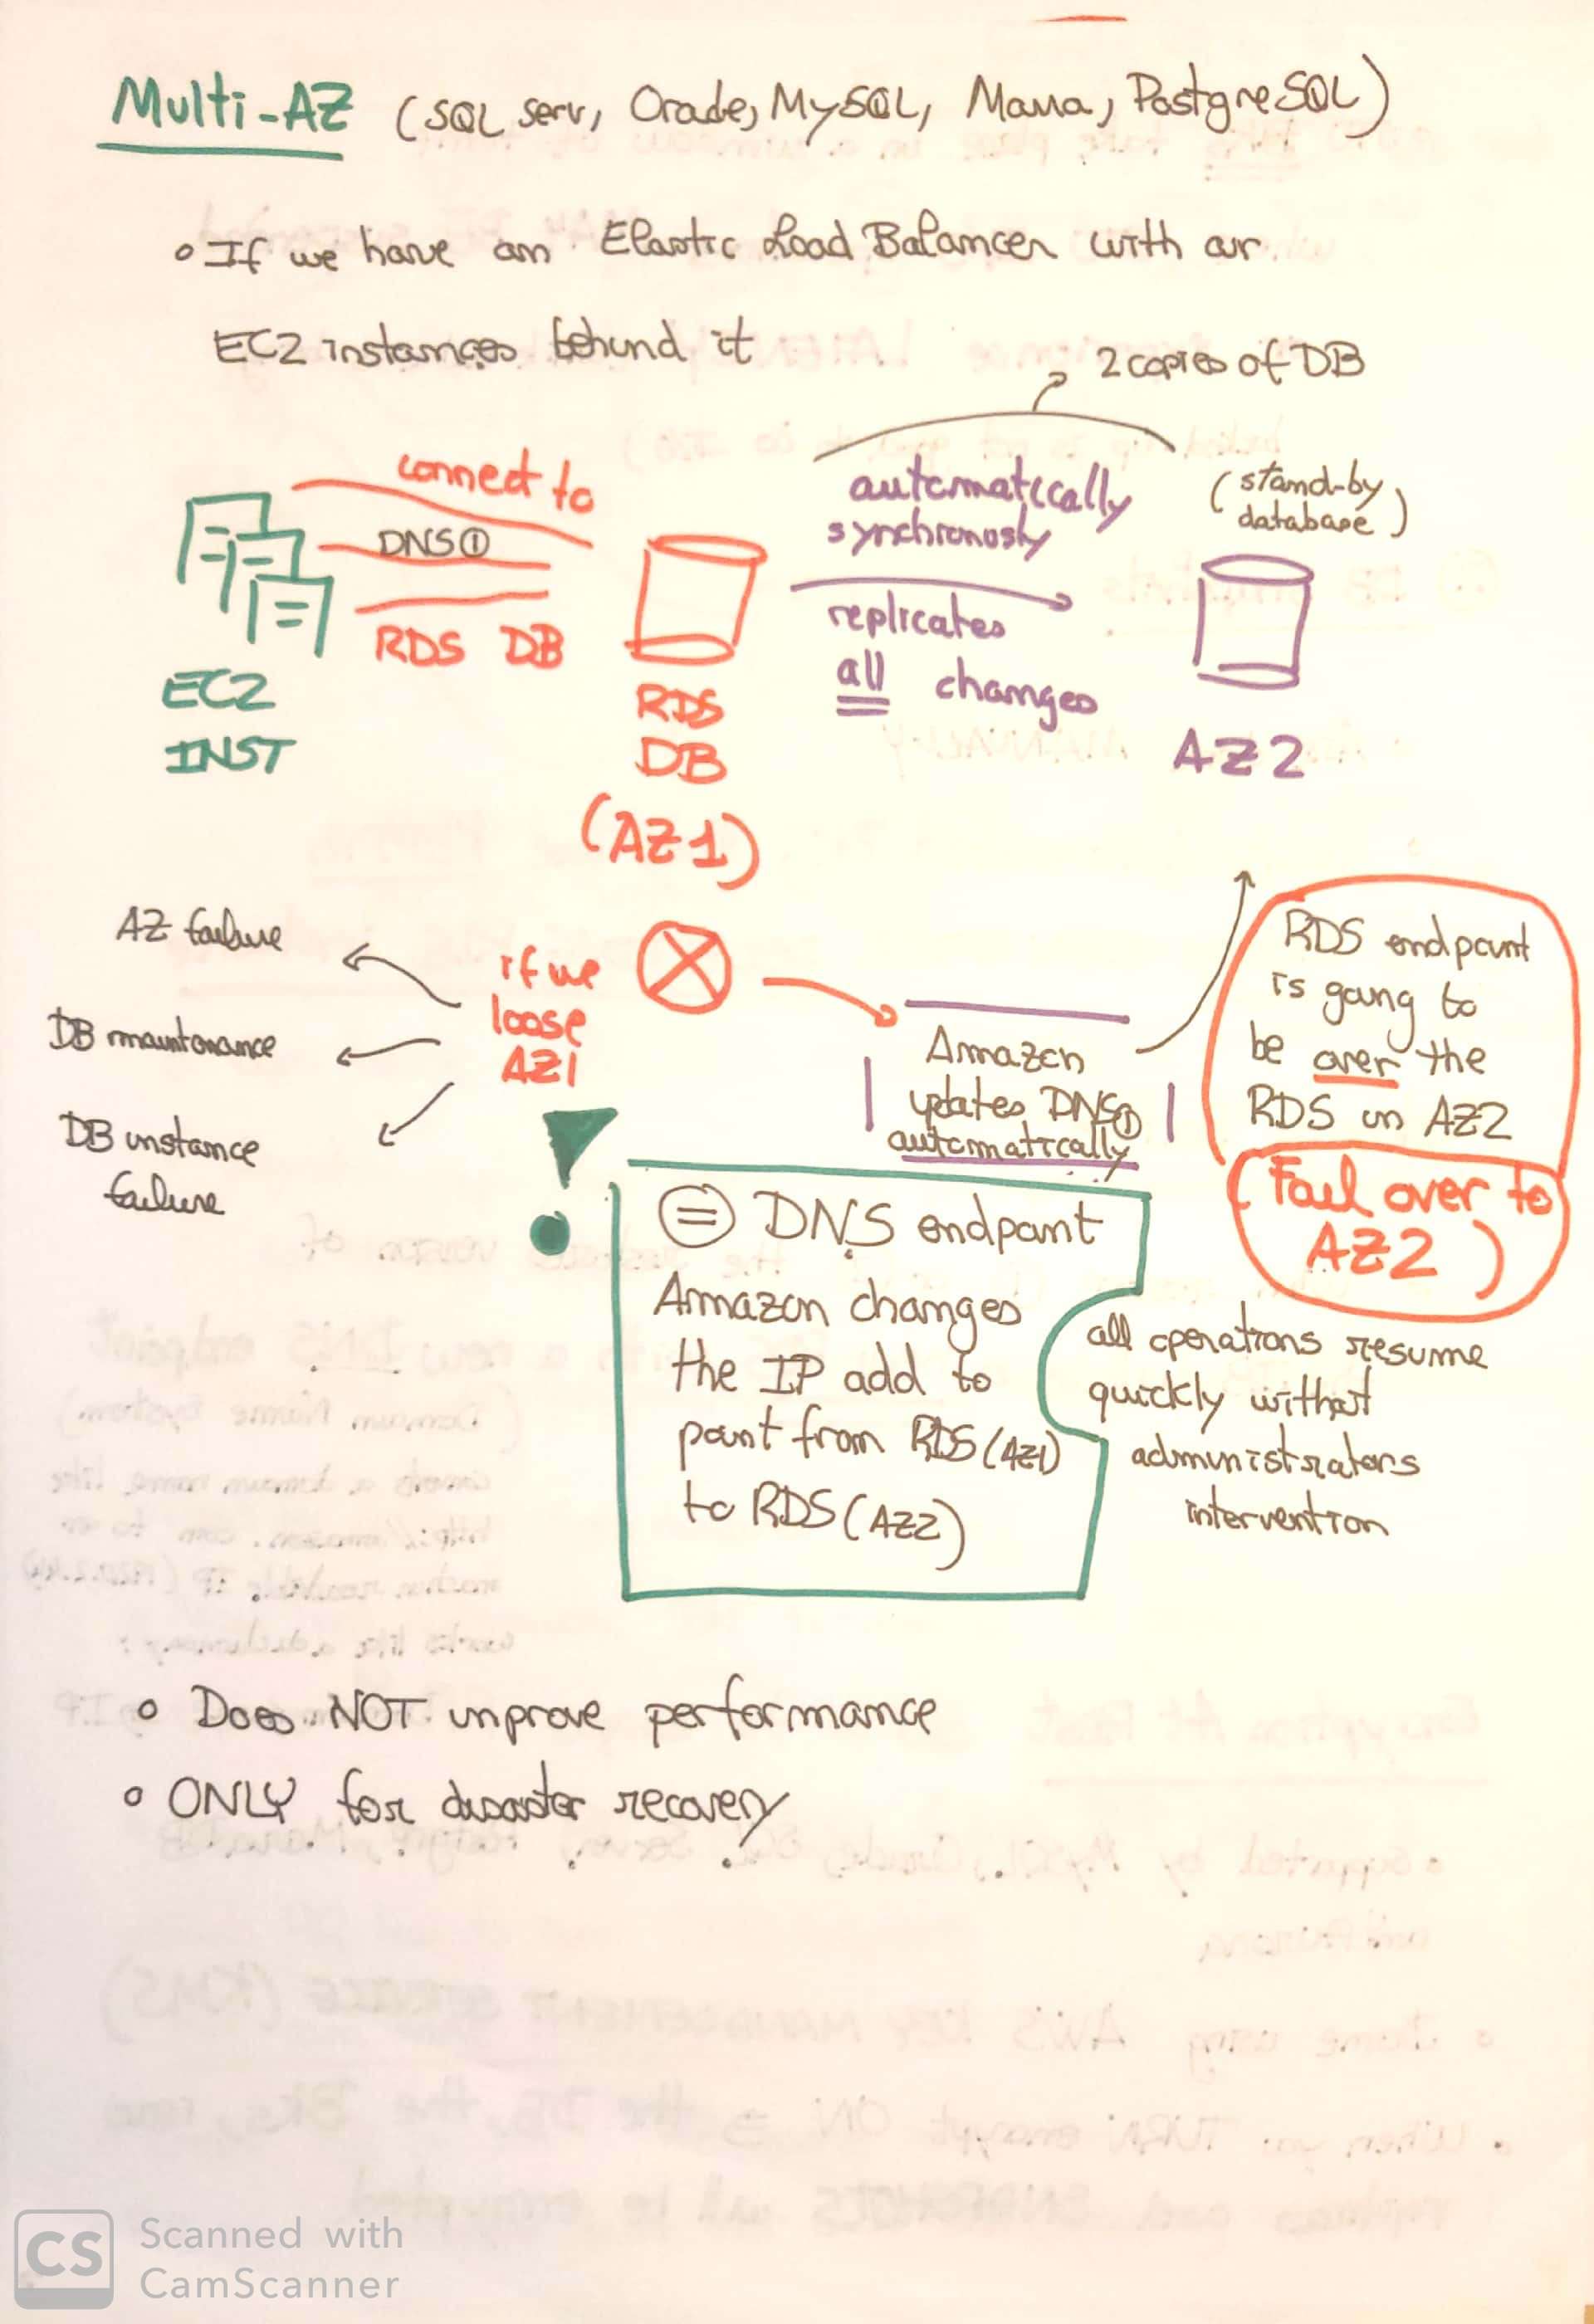 Multi-AZ (SQL serv, Oracle, MySQL, Maria, PostgreSQL)
• If we have an Elastic Load Balancer with our
EC2 instances behind it
2 copies of DB
connect to
DNS①
RDS DB
automatically
synchronously
replicates
all changes
(stand-by
database)
EC2
INST
RDS
DB
(AZ1)
AZ2
AZ failure
DB maintenance
DB instance
failure
if we
loose
AZ1
Amazon
updates DNS①
automatically
RDS endpoint
is going to
be over the
RDS in AZ2
(Fail over to
AZ2)
= DNS endpoint
Amazon changes
the IP add to
point from RDS (AZ1)
to RDS (AZ2)
all operations resume
quickly without
administrators
intervention
• Does NOT improve performance
• ONLY for disaster recovery
CS
Scanned with
CamScanner